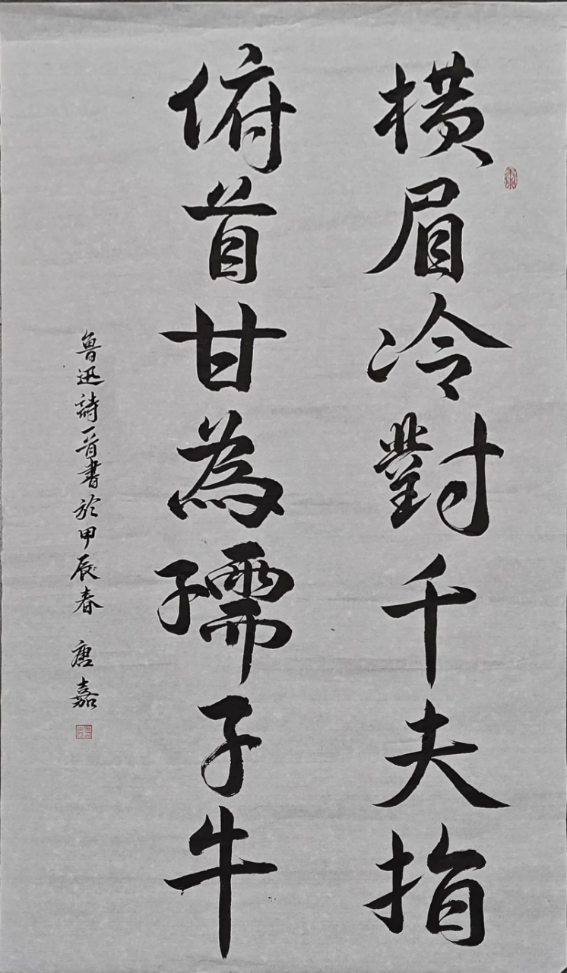 橫眉冷對千夫指
俯首甘為孺子牛
魯迅詩一首書於甲辰春 唐嘉